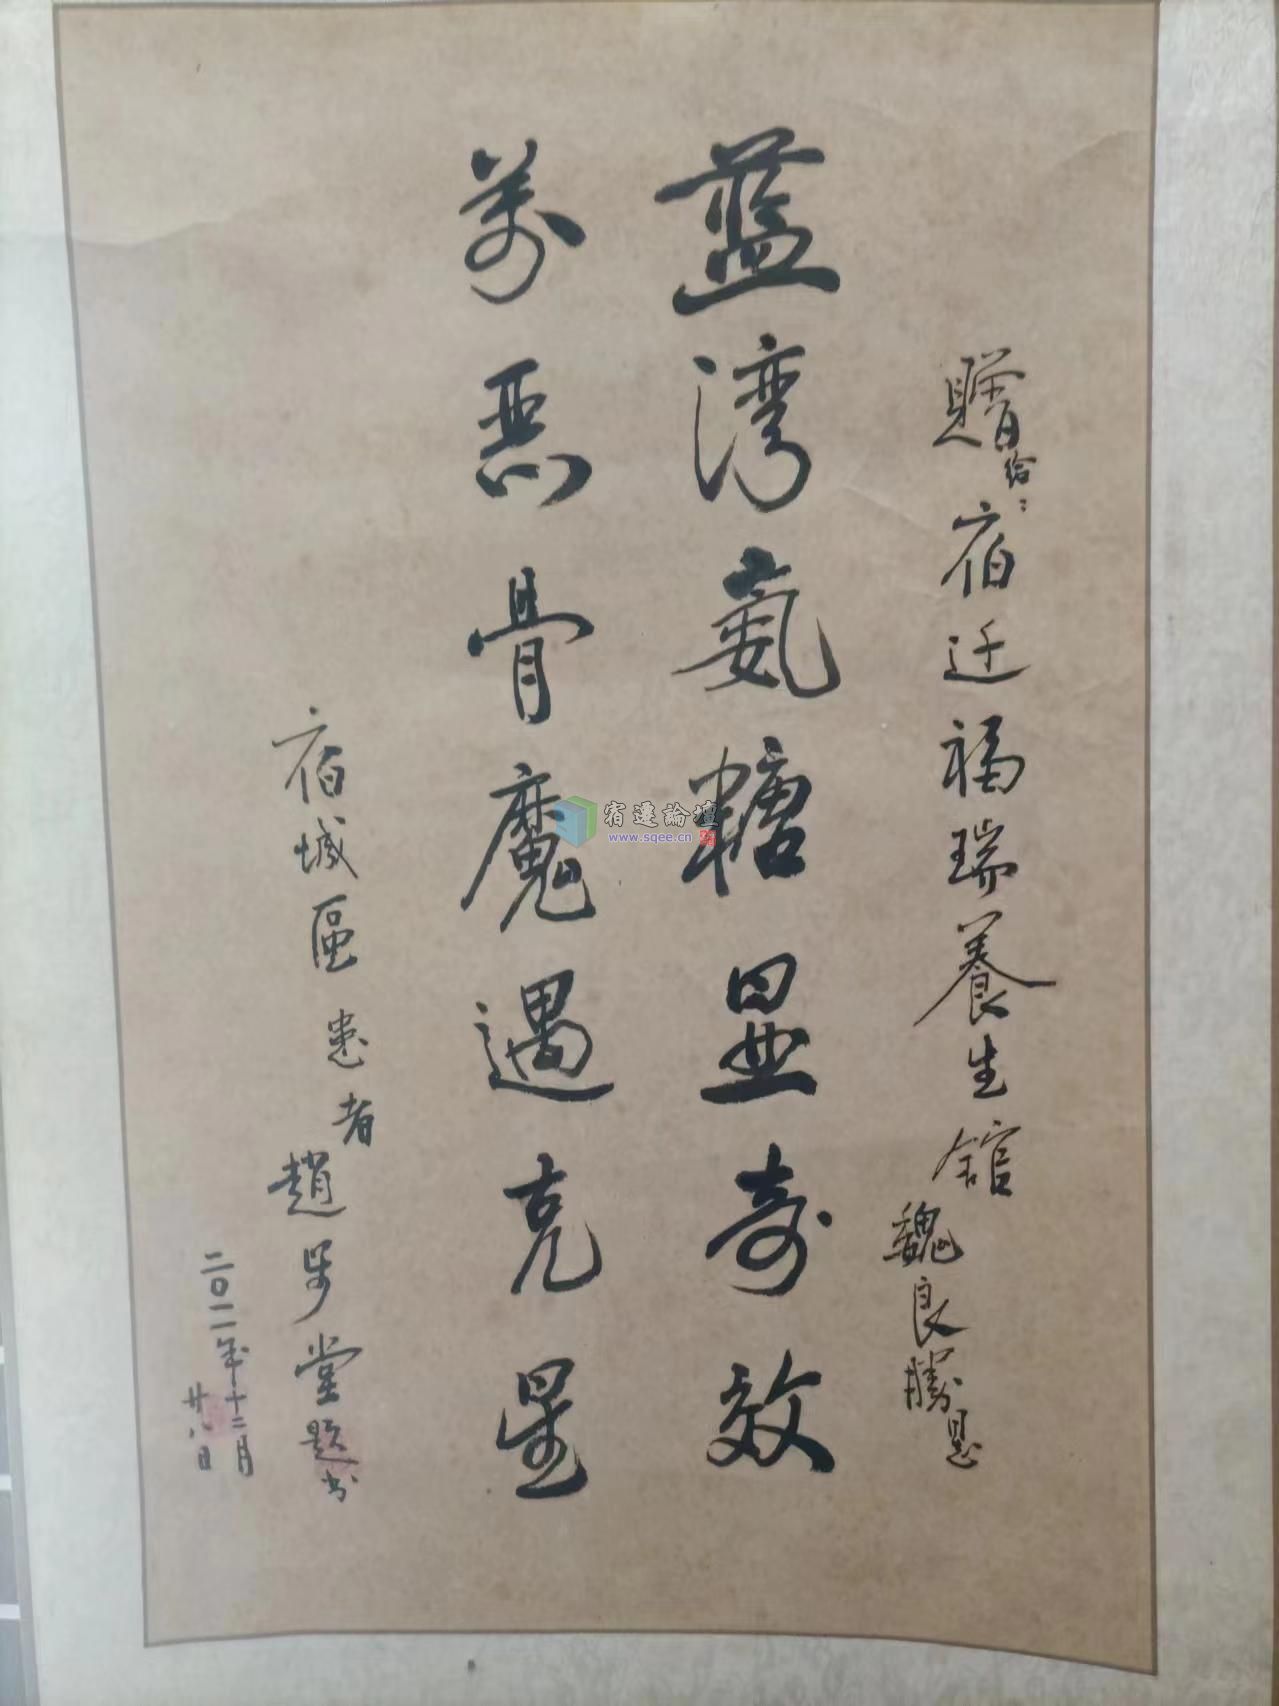 赠给：宿迁福瑞養生舘魏良勝恩
蓝湾氨糖显奇效
萬恶骨魔遇克星
宿城區患者趙步堂题书
二〇一一年十二月
廿八日
宿遷論壇
www.sqee.cn